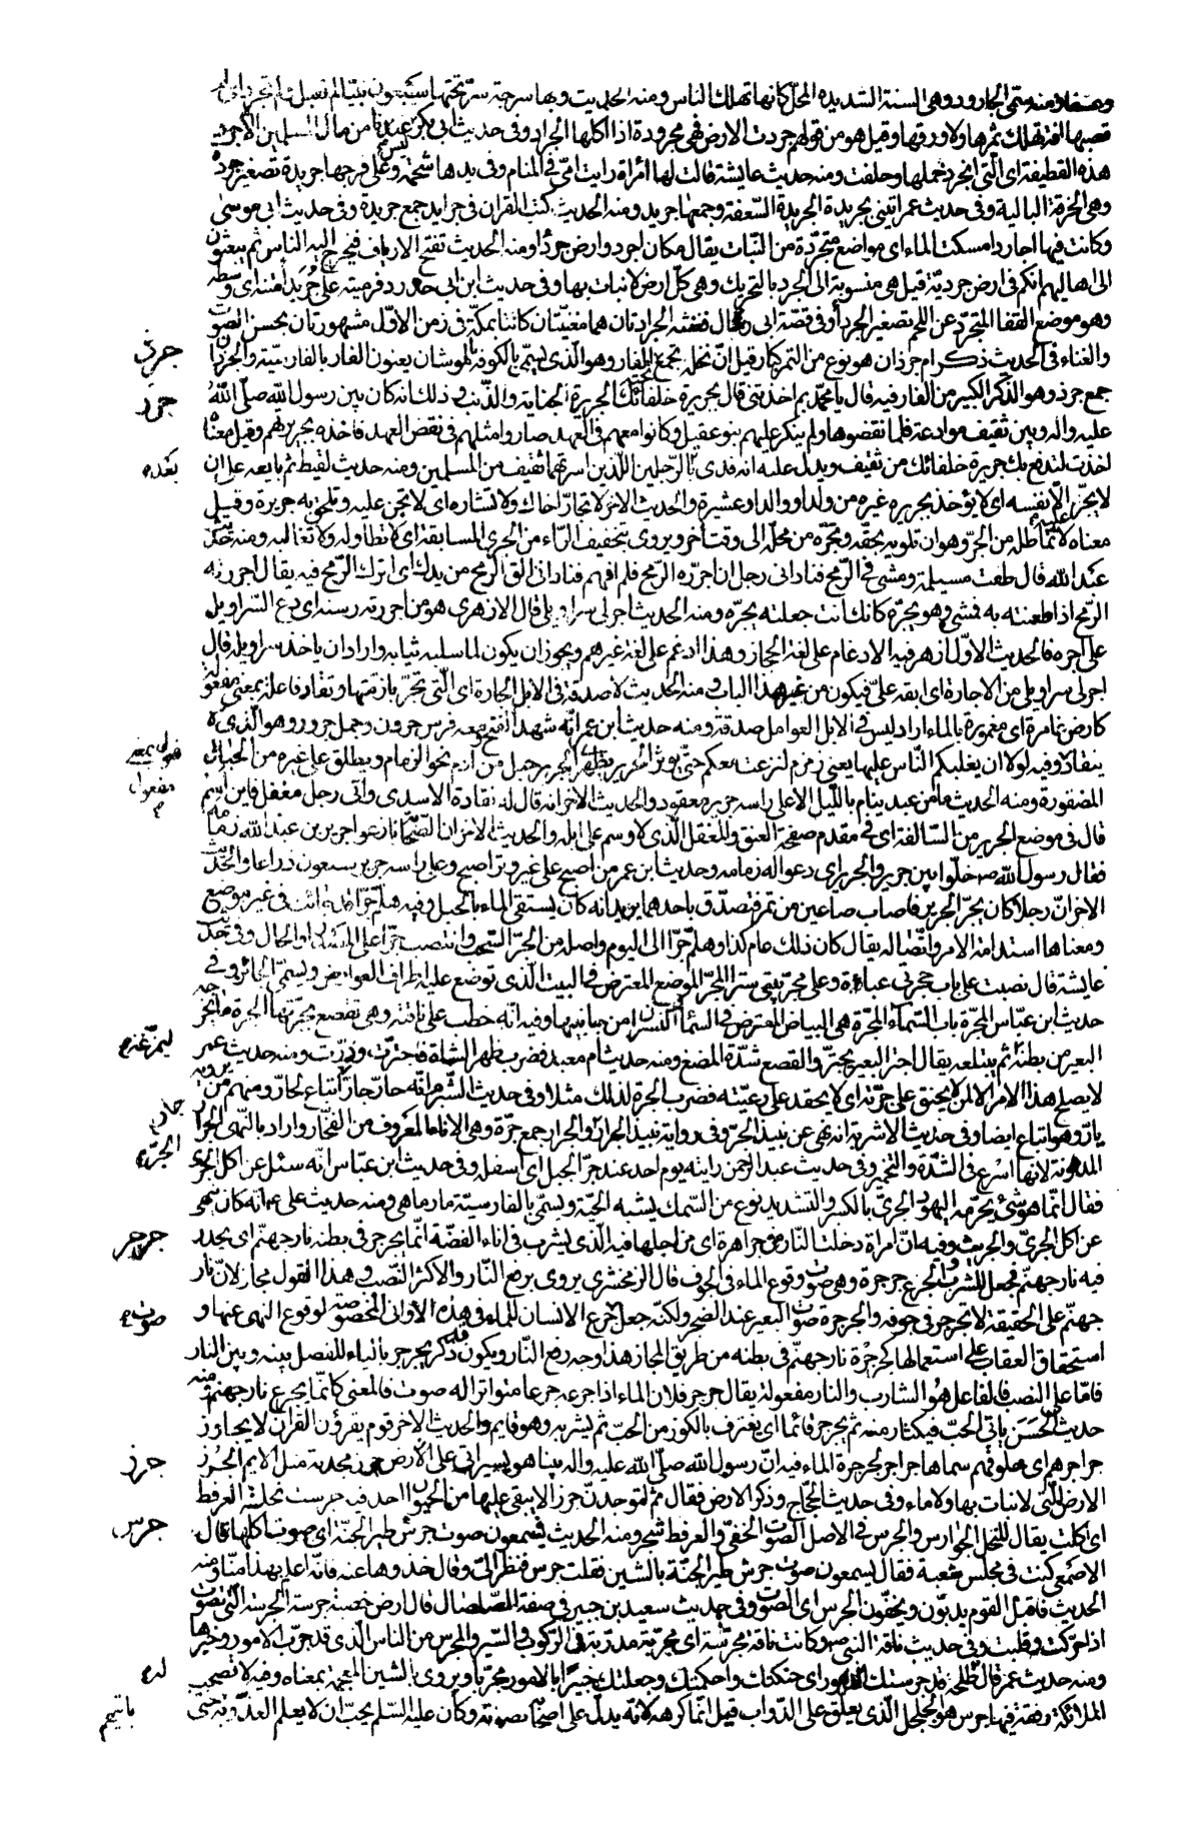 ومنه سمي الجارود وهى السنة الشديدة المحل كانها تهلك الناس ومنه الحديث وبها سرحة سرّ تحتها سبعون نبيّا لم تقبل ولم تجرد اى لم
تصبها افة تهلك ثمرها ولا ورقها وقيل هو من قولهم جردت الارض فهى مجرودة اذا اكلها الجراد وفى حديث ابى بكر ليس عندنا من مال المسلمين الا جرد
هذه القطيفة اى التى انجرد خملها وخلقت ومنه حديث عايشة قالت لها امرأة رايت امّى فى المنام وفى يدها شحمة وعلى فرجها جريدة تصغير جردة
وهى الخرقة البالية وفى حديث عمر ايتنى بجريدة الجريدة السّعفة وجمعها جريد ومنه الحديث كتب القران فى جرايد جمع جريدة وفى حديث ابى موسى
وكانت فيها اجارد امسكت الماء اى مواضع متجرّدة من النّبات يقال مكان اجرد وارض جرداء ومنه الحديث تفتح الارياف فيخرج اليها الناس ثم يبعثون
الى اهاليهم انكم فى ارض جردية قيل هى منسوبة الى الجرد بالتحريك وهى كلّ ارض لا نبات بها وفى حديث ابن ابى حدرد فرميته على جُرَيداء متنه اى وسطه
وهو موضع القفا المتجرّد عن اللحم تصغير الجرداء وفى قصّة ابى رغال فغنته الجرادتان هما مغنيّتان كانتا بمكة فى زمن الاوّل مشهورتان بحسن الصّوت
والغناء فى الحديث ذكر ام جرذان هو نوع من التمر كبار قيل انّ نخله تجمع الفار وهو الّذى يسمّى بالكوفة الموشان يعنون الفار بالفارسيّة والجرذان
جرذ
جمع جرذ وهو الذّكر الكبير من الفار فيه قال يا محمّد بم اخذتنى قال بجريرة حلفائك الجريرة الجناية والذّنب وذلك انه كان بين رسول الله صلّى اللهُ
جرر
عليه واله وبين ثقيف موادعة فلما نقضوها ولم ينكر عليهم بنو عقيل وكانوا معهم فى العهد صاروا مثلهم فى نقض العهد فاخذه بجريرتهم وقيل معناه
اخذت لتدفع بك جريرة حلفائك من ثقيف ويدل عليه انه فدى بالرّجلين اللّذين اسرتهما ثقيف من المسلمين ومنه حديث لقيط ثم بايعه على ان
بعده
لا يجرّ الّا نفسه اى لا يؤخذ بجريرة غيره من ولد او والد او عشيرة والحديث الاخر لا تجارّ اخاك ولا تشاره اى لا تجن عليه وتلحق به جريرة وقيل
معناه لا تماطله من الجرّ وهو ان تلويه بحقّه وتجرّه من محلّه الى وقت اخر ويروى بتخفيف الرّاء من الجرى المسابقة اى لا تطاوله ولا تغالبه ومنه حديث
عبد الله قال طعنت مسيلمة ومشى فى الرّمح فنادانى رجل ان اجرره الرّمح فلم افهم فنادانى الق الرّمح من يدك اى اترك الرّمح فيه يقال اجررته
الرّمح اذا طعنته به فمشى وهو يجرّه كانك انت جعلته يجرّه ومنه الحديث اجرّ لى سراويلى قال الازهرى هو من اجررته رسنه اى دع السّراويل
علىّ اجره فالحديث الاوّل اظهر فيه الادغام على لغة الحجاز وهذا ادغم على لغة غيرهم ويجوز ان يكون لما سلبه ثيابه واراد ان ياخذ سراويله قال
اجر لى سراويلى من الاجارة اى ابقه علىّ فيكون من غير هذا الباب ومنه الحديث لا صدقة فى الابل الجارة اى الّتى تجرّ بازمّتها وتقاد فاعلة بمعنى مفعولة
كارض غامرة اى مغمورة بالماء اراد ليس فى الابل العوامل صدقة ومنه حديث ابن عمر انّه شهد الفتح ومعه فرس حرون وجمل جرور وهو الّذى لا
ينقاد وفيه لولا ان يغلبكم النّاس عليها يعنى زمزم لنزعت معكم حتى يوثر الجرير بظهرى الجرير حبل من ادم نحو الزمام ويطلق على غيره من الحبال
فعول بمعنى
مفعول
المضفورة ومنه الحديث ما من عبد ينام باللّيل الا على راسه جرير معقود والحديث الاخر انه قال له نقادة الاسدى وانّى رجل مغفل فاين اسم
قال فى موضع الجرير من السّالفة اى فى مقدم صفحة العنق والمغفل الّذى لا وسم على ابله والحديث الاخر ان الصّحابة نازعوا جرير بن عبد الله زمامه
فقال رسول الله ص خلّوا بين جرير والجرير اى دعوا له زمامه وحديث ابن عمر من اصبح على غير وتر اصبح وعلى راسه جرير سبعون ذراعا والحديث
الاخر انّ رجلا كان يجرّ الجرير فاصاب صاعين من تمر فتصدّق باحدهما يريد انه كان يستقى الماء بالحبل وفيه هلمّ جرّا قد جائت فى غير موضع
ومعناها استدامة الامر واتّصاله يقال كان ذلك عام كذا وهلمّ جرّا الى اليوم واصله من الجرّ السّحب وانتصب جرّا على المصدر او الحال وفى حديث
عايشة قال نصبت على باب حجرتى عباءة وعلى مجرّ بيتى سترا المجرّ الموضع المعترض فى البيت الّذى توضع عليه اطراف العوارض ويسمّى الجائز وفى
حديث ابن عبّاس المجرّة باب السّماء المجرّة هى البياض المعترض فى السّماء والنّسران من جانبيها وفيه انّه خطب على ناقته وهى تقصع بجرّتها الجرة ما يخرجه
البعير من بطنه ثم يبتلعه يقال اجترّ البعير يجترّ والقصع شدّة المضغ ومنه حديث ام معبد فضرب ظهر الشاة فاجترّت ودرّت ومنه حديث عمر
ليمرغه
لا يصلح هذا الامر الا لمن لا يحنق على جرّته اى لا يحقد على رعيّته فضرب الجرة لذلك مثلا وفى حديث الشّبرم انّه حارّ جارّ اتباع لحارّ ومنهم من يرويه
يارّ وهو اتباع ايضا وفى حديث الاشربة انه نهى عن نبيذ الجرّ وفى رواية نبيذ الجرار والجرار جمع جرّة وهى الاناء المعروف من الفخّار واراد بالنّهى الجرار
جارّ
المدهونة لانها اسرع فى الشدّة والتخمير وفى حديث عبد الرّحمن رايته يوم احد عند جرّ الجبل اى اسفله وفى حديث ابن عبّاس انّه سئل عن اكل الجرّى
الجرّى
فقال انّما هو شئ يحرّمه اليهود الجرىّ بالكسر والتشديد نوع من السّمك يشبه الحيّة ويسمّى بالفارسيّة مارماهى ومنه حديث على ع انه كان ينهى
عن اكل الجرىّ والجريث وفيه انّ امراة دخلت النّار من جرا هرة اى من اجلها فيه الّذى يشرب فى اناء الفضّة انّما يجرجر فى بطنه نار جهنّم اى يحدر
جرجر
فيه نار جهنّم فجعل للشرب والجرع جرجرة وهى صوت وقوع الماء فى الجوف قال الزمخشرى يروى برفع النّار والاكثر النّصب وهذا القول مجاز لانّ نار
جهنّم على الحقيقة لا تجرجر فى جوفه والجرجرة صوت البعير عند الضجر ولكنّه جعل جرع الانسان للماء فى هذه الاوانى المخصوصة لوقوع النهى عنها و
صوت
استحقاق العقاب على استعمالها كجرجرة نار جهنّم فى بطنه من طريق المجاز هذا وجه رفع النّار ويكون قد ذكر يجرجر بالياء للفصل بينه وبين النار
فامّا على النصب فالفاعل هُو الشارب والنار مفعولة يقال جرجر فلان الماء اذا جرعه جرعا متواترا له صوت فالمعنى كانّما يجرع نار جهنم ومنه
حديث الحَسَن ياتى الحبّ فيكتاز منه ثم يجرجر قائما اى يغترف بالكوز من الحبّ ثم يشربه وهو قايم والحديث الاخر قوم يقرؤن القران لا يجاوز
جراجرهم اى حلوقهم سماها جراجر لجرجرة الماء فيه انّ رسول الله صلّى الله عليه واله بينا هو يسير اتى على الارض جرز مجدبة مثل الايم الجُرز
جرز
الارض الّتى لا نبات بها ولا ماء وفى حديث الحجّاج وذكر الارض فقال ثم لتوجدنّ جرزا لا يبقى عليها من الحيوان احد فيه جرست نحلته العرفط
اى اكلت يقال للنحل الجوارس والجرس فى الاصل الصّوت الخفىّ والعرفط شجر ومنه الحديث فيسمعون صوت جرش طير الجنّة اى صوت اكلها قال
جرس
الاصمعى كنت فى مجلس شعبة فقال يسمعون صوت جرش طير الجنّة بالشين فقلت جرس فنظر الىّ وقال خذوها عنه فانّه اعلم بهذا منّا ومنه
الحديث فاقبل القوم يدبّون ويخفون الجرس اى الصّوت وفى حديث سعيد بن جبير فى صفة الصّلصال قال ارض خصبة جرسة الجرسة الّتى تصوّت
اذا حركت وقلبت وفى حديث ناقة النبى ص وكانت ناقة مجرّسة اى مجرّبة مدرّبة فى الرّكوب والسّير والمجرس من الناس الّذى قد جرّب الامور وخبرها
ومنه حديث عمر قال طلحة قد جرستك الدّهور اى حنكتك واحكمتك وجعلتك خبيرا بالامور مجرّبا ويروى بالشين المعجمة بمعناه وفيه لا تصحب
له
الملائكة رفقة فيها جرس هو الجلجل الّذى يعلّق على الدّواب قيل انّما كرهه لانّه يدلّ على اصحابه بصوته وكان عليه السّلم يحبّ ان لا يعلم العدوّ به حتى
ياتيهم